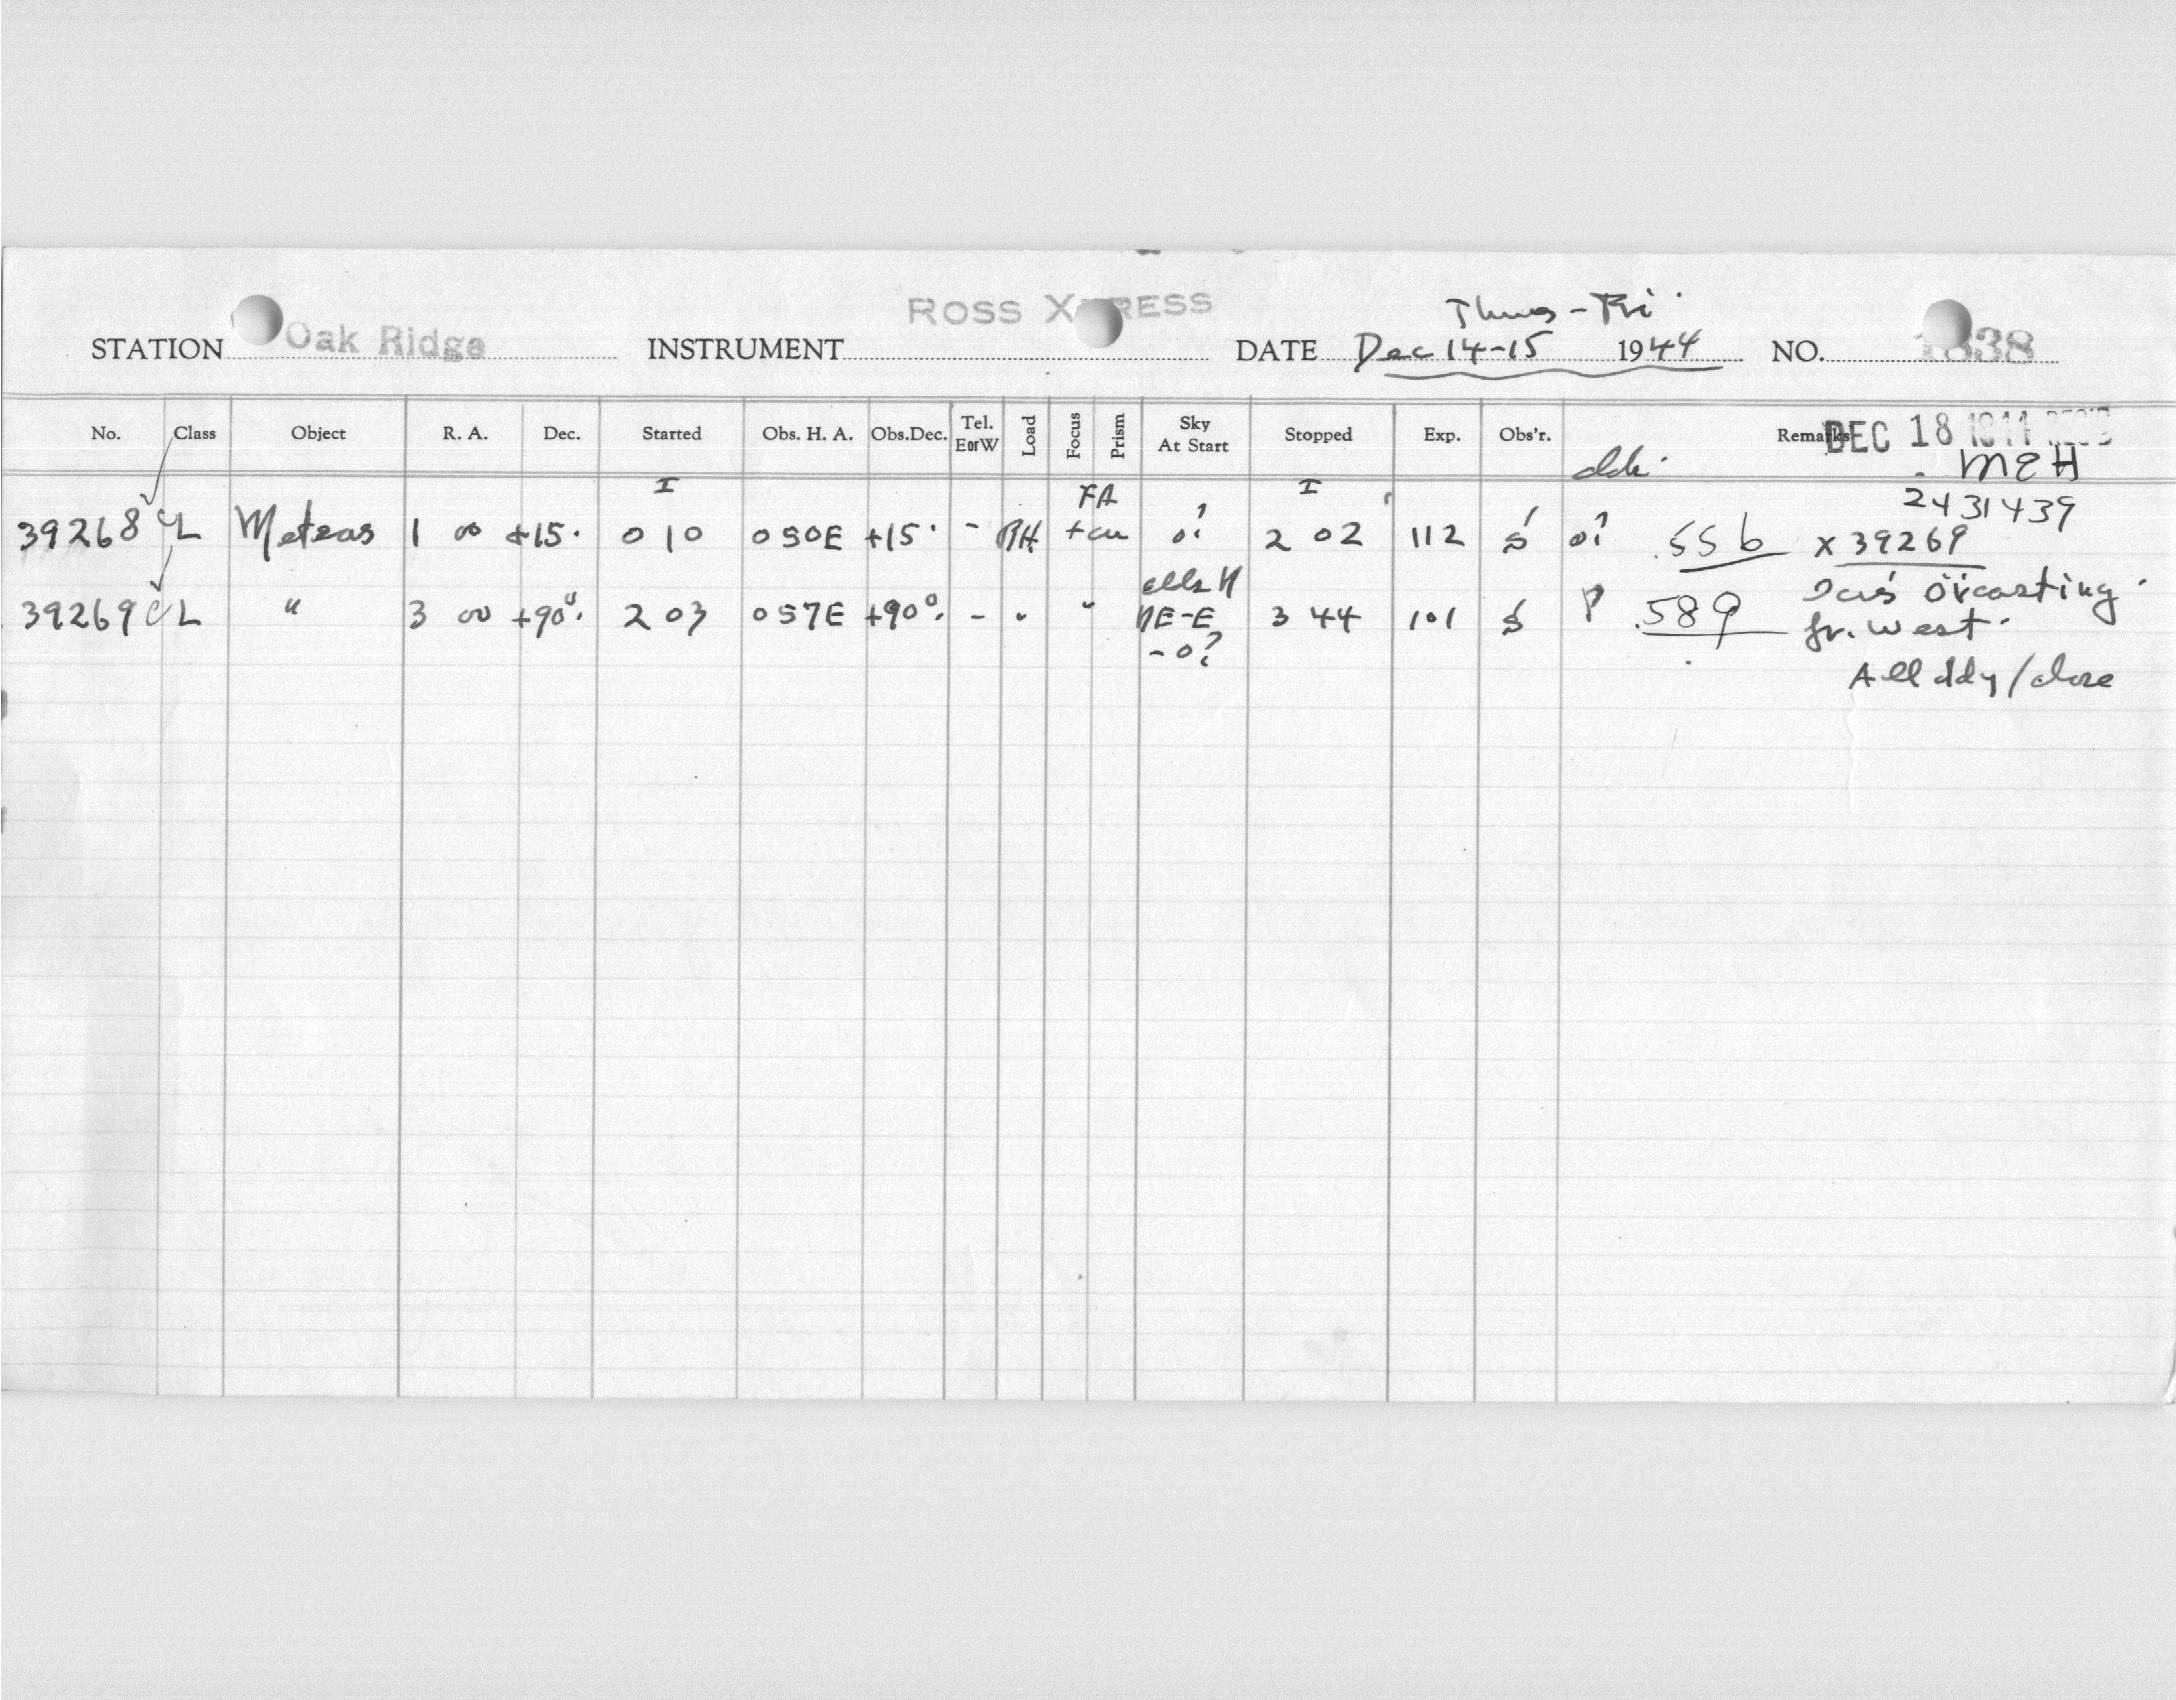 ROSS XPRESS Thurs-Fri
STATION Oak Ridge INSTRUMENT DATE Dec 14-15 1944 NO. 1838
No. Class Object R. A. Dec. Started Obs. H. A. Obs.Dec. Tel. EorW Load Focus Prism Sky At Start Stopped Exp. Obs'r. Remarks DEC 18 1944 REC'D
MEH
I FA I 2431439
39268 CL Meteors 1 00 +15° 0 10 0 50E +15° - RH + cu 0? 2 02 112 S 0? .556 x 39269
39269 CL " 3 00 +90° 2 03 0 57E +90° - " " clds N NE-E - 0? 3 44 101 S P .589 o'rcasting
fr. west.
All cldy/close